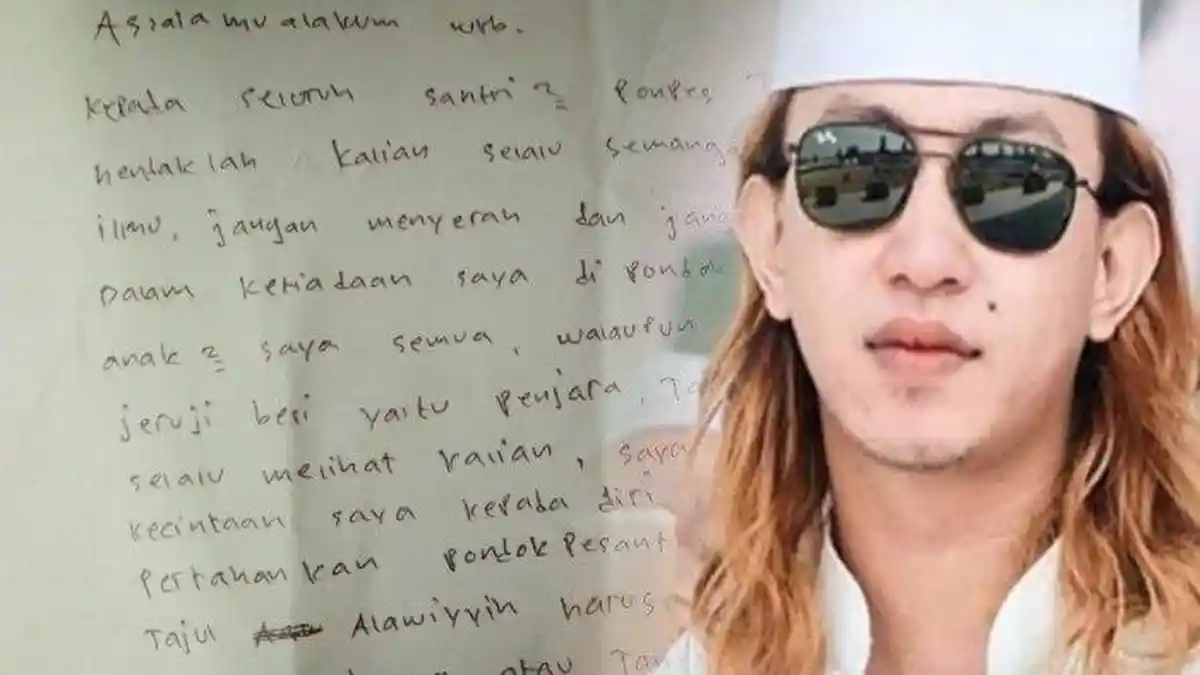 Assalamualakum wrb.
Kepada seluruh santri2 Ponpes
hendaklah kalian selalu semanga
ilmu, jangan menyerah dan jang
Dalam ketiadaan saya di Pondok
anak2 saya semua, walaupun
jeruji besi yaitu Penjara, Ta
selalu melihat kalian, saya
kecintaan saya kepada diri
Pertahankan Pondok Pesant
Tajul Alawiyyin harus
atau Ta